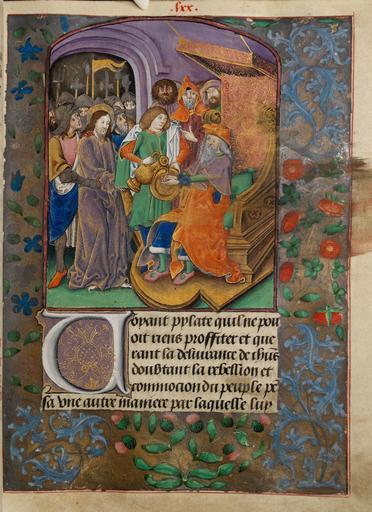 .lxx.
Voyant pylate quil ne pou
oit riens proffiter et que
rant la deliurance de ihus
doubtant la rebellion et
commocion du peuple pe
sa vne autre maniere par laquelle luy